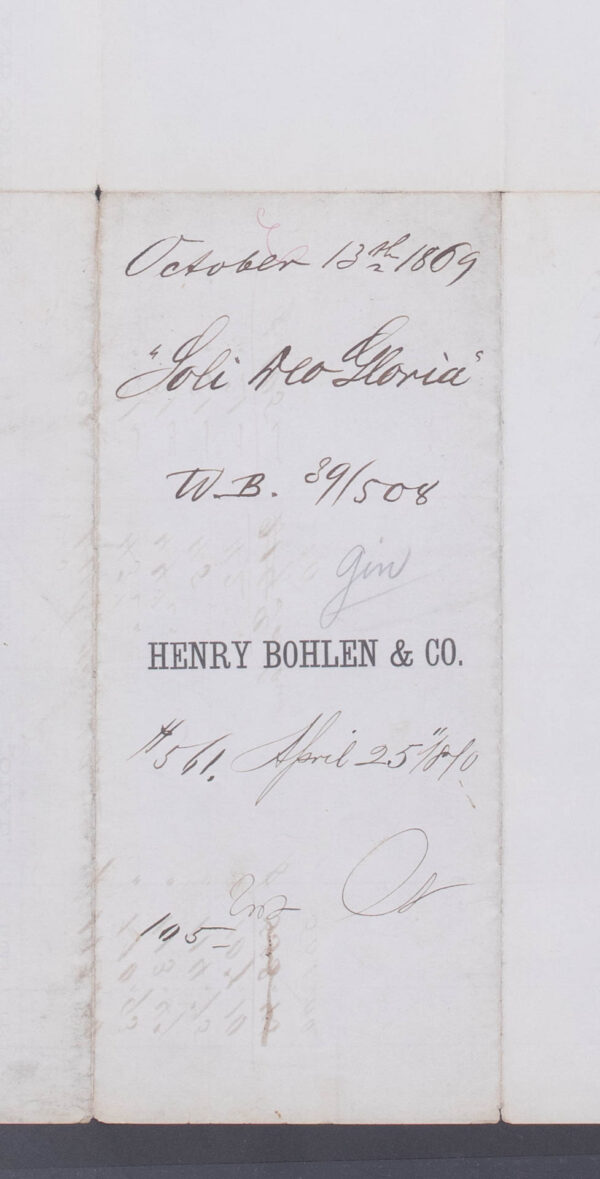 October 13th 1869
"Soli Deo Gloria"
W.B. 39/508
Gin
HENRY BOHLEN & CO.
#561. April 25" 1870
105-